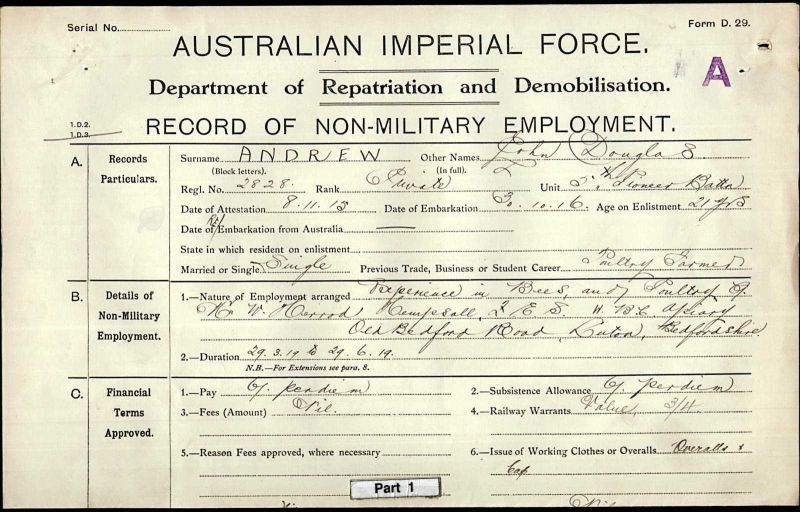 Serial No.
Form D. 29.
AUSTRALIAN IMPERIAL FORCE.
A
Department of Repatriation and Demobilisation.
1.D.2.
1.D.3.
RECORD OF NON-MILITARY EMPLOYMENT.
A. Records Particulars.
Surname ANDREW Other Names John Douglas
(Block letters). (In full).
Regl. No. 2828. Rank Private Unit 5th Pioneer Battn
Date of Attestation 8.11.15 Date of Embarkation 30.10.16. Age on Enlistment 21 yrs
Date of Embarkation from Australia
State in which resident on enlistment
Married or Single Single Previous Trade, Business or Student Career Poultry Farmer
B. Details of Non-Military Employment.
1.—Nature of Employment arranged Experience in Bees, and Poultry
W. Herrod Hempsall, Apiary
Old Bedford Road, Luton, Bedfordshire
2.—Duration 29.3.19 to 29.6.19.
N.B.—For Extensions see para. 8.
C. Financial Terms Approved.
1.—Pay 6/. per diem 2.—Subsistence Allowance 6/. per diem
3.—Fees (Amount) Nil. 4.—Railway Warrants Value 3/4
5.—Reason Fees approved, where necessary 6.—Issue of Working Clothes or Overalls Overalls &
Cap
Part 1